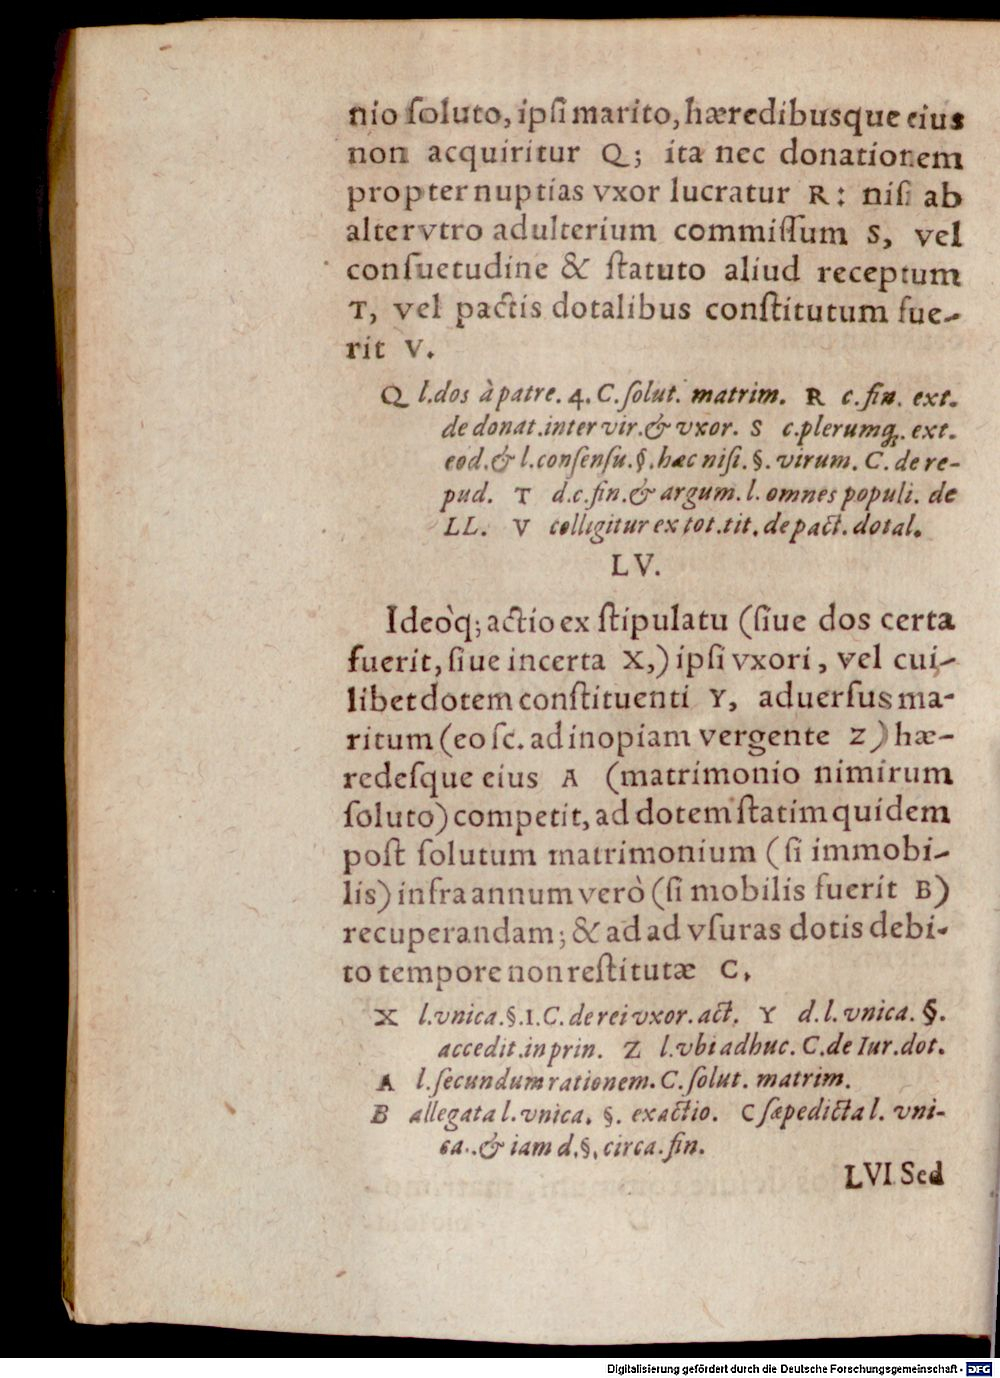 nio ſoluto, ipſi marito, hæredibusque eius
non acquiritur Q; ita nec donationem
propter nuptias vxor lucratur R: niſi ab
altervtro adulterium commiſſum S, vel
conſuetudine & ſtatuto aliud receptum
T, vel pactis dotalibus conſtitutum fue-
rit V.
Q l. dos à patre. 4. C. ſolut. matrim. R c. fin. ext.
de donat. inter vir. & vxor. S c. plerumq;. ext.
eod. & l. conſenſu. §. hæc niſi. §. virum. C. de re-
pud. T d. c. fin. & argum. l. omnes populi. de
LL. V colligitur ex tot. tit. de pact. dotal.
LV.
Ideòq; actio ex ſtipulatu (ſiue dos certa
fuerit, ſiue incerta X,) ipſi vxori, vel cui-
libet dotem conſtituenti Y, aduerſus ma-
ritum (eo ſc. ad inopiam vergente Z) hæ-
redeſque eius A (matrimonio nimirum
ſoluto) competit, ad dotem ſtatim quidem
poſt ſolutum matrimonium (ſi immobi-
lis) infra annum verò (ſi mobilis fuerit B)
recuperandam; & ad ad vſuras dotis debi-
to tempore non reſtitutæ C.
X l. vnica. §. 1. C. de rei vxor. act. Y d. l. vnica. §.
accedit. in prin. Z l. vbi adhuc. C. de Iur. dot.
A l. ſecundum rationem. C. ſolut. matrim.
B allegata l. vnica. §. exactio. C ſæpedicta l. vni-
ca.. & iam d. §. circa. fin.
LVI. Sed
Digitalisierung gefördert durch die Deutsche Forschungsgemeinschaft - DFG